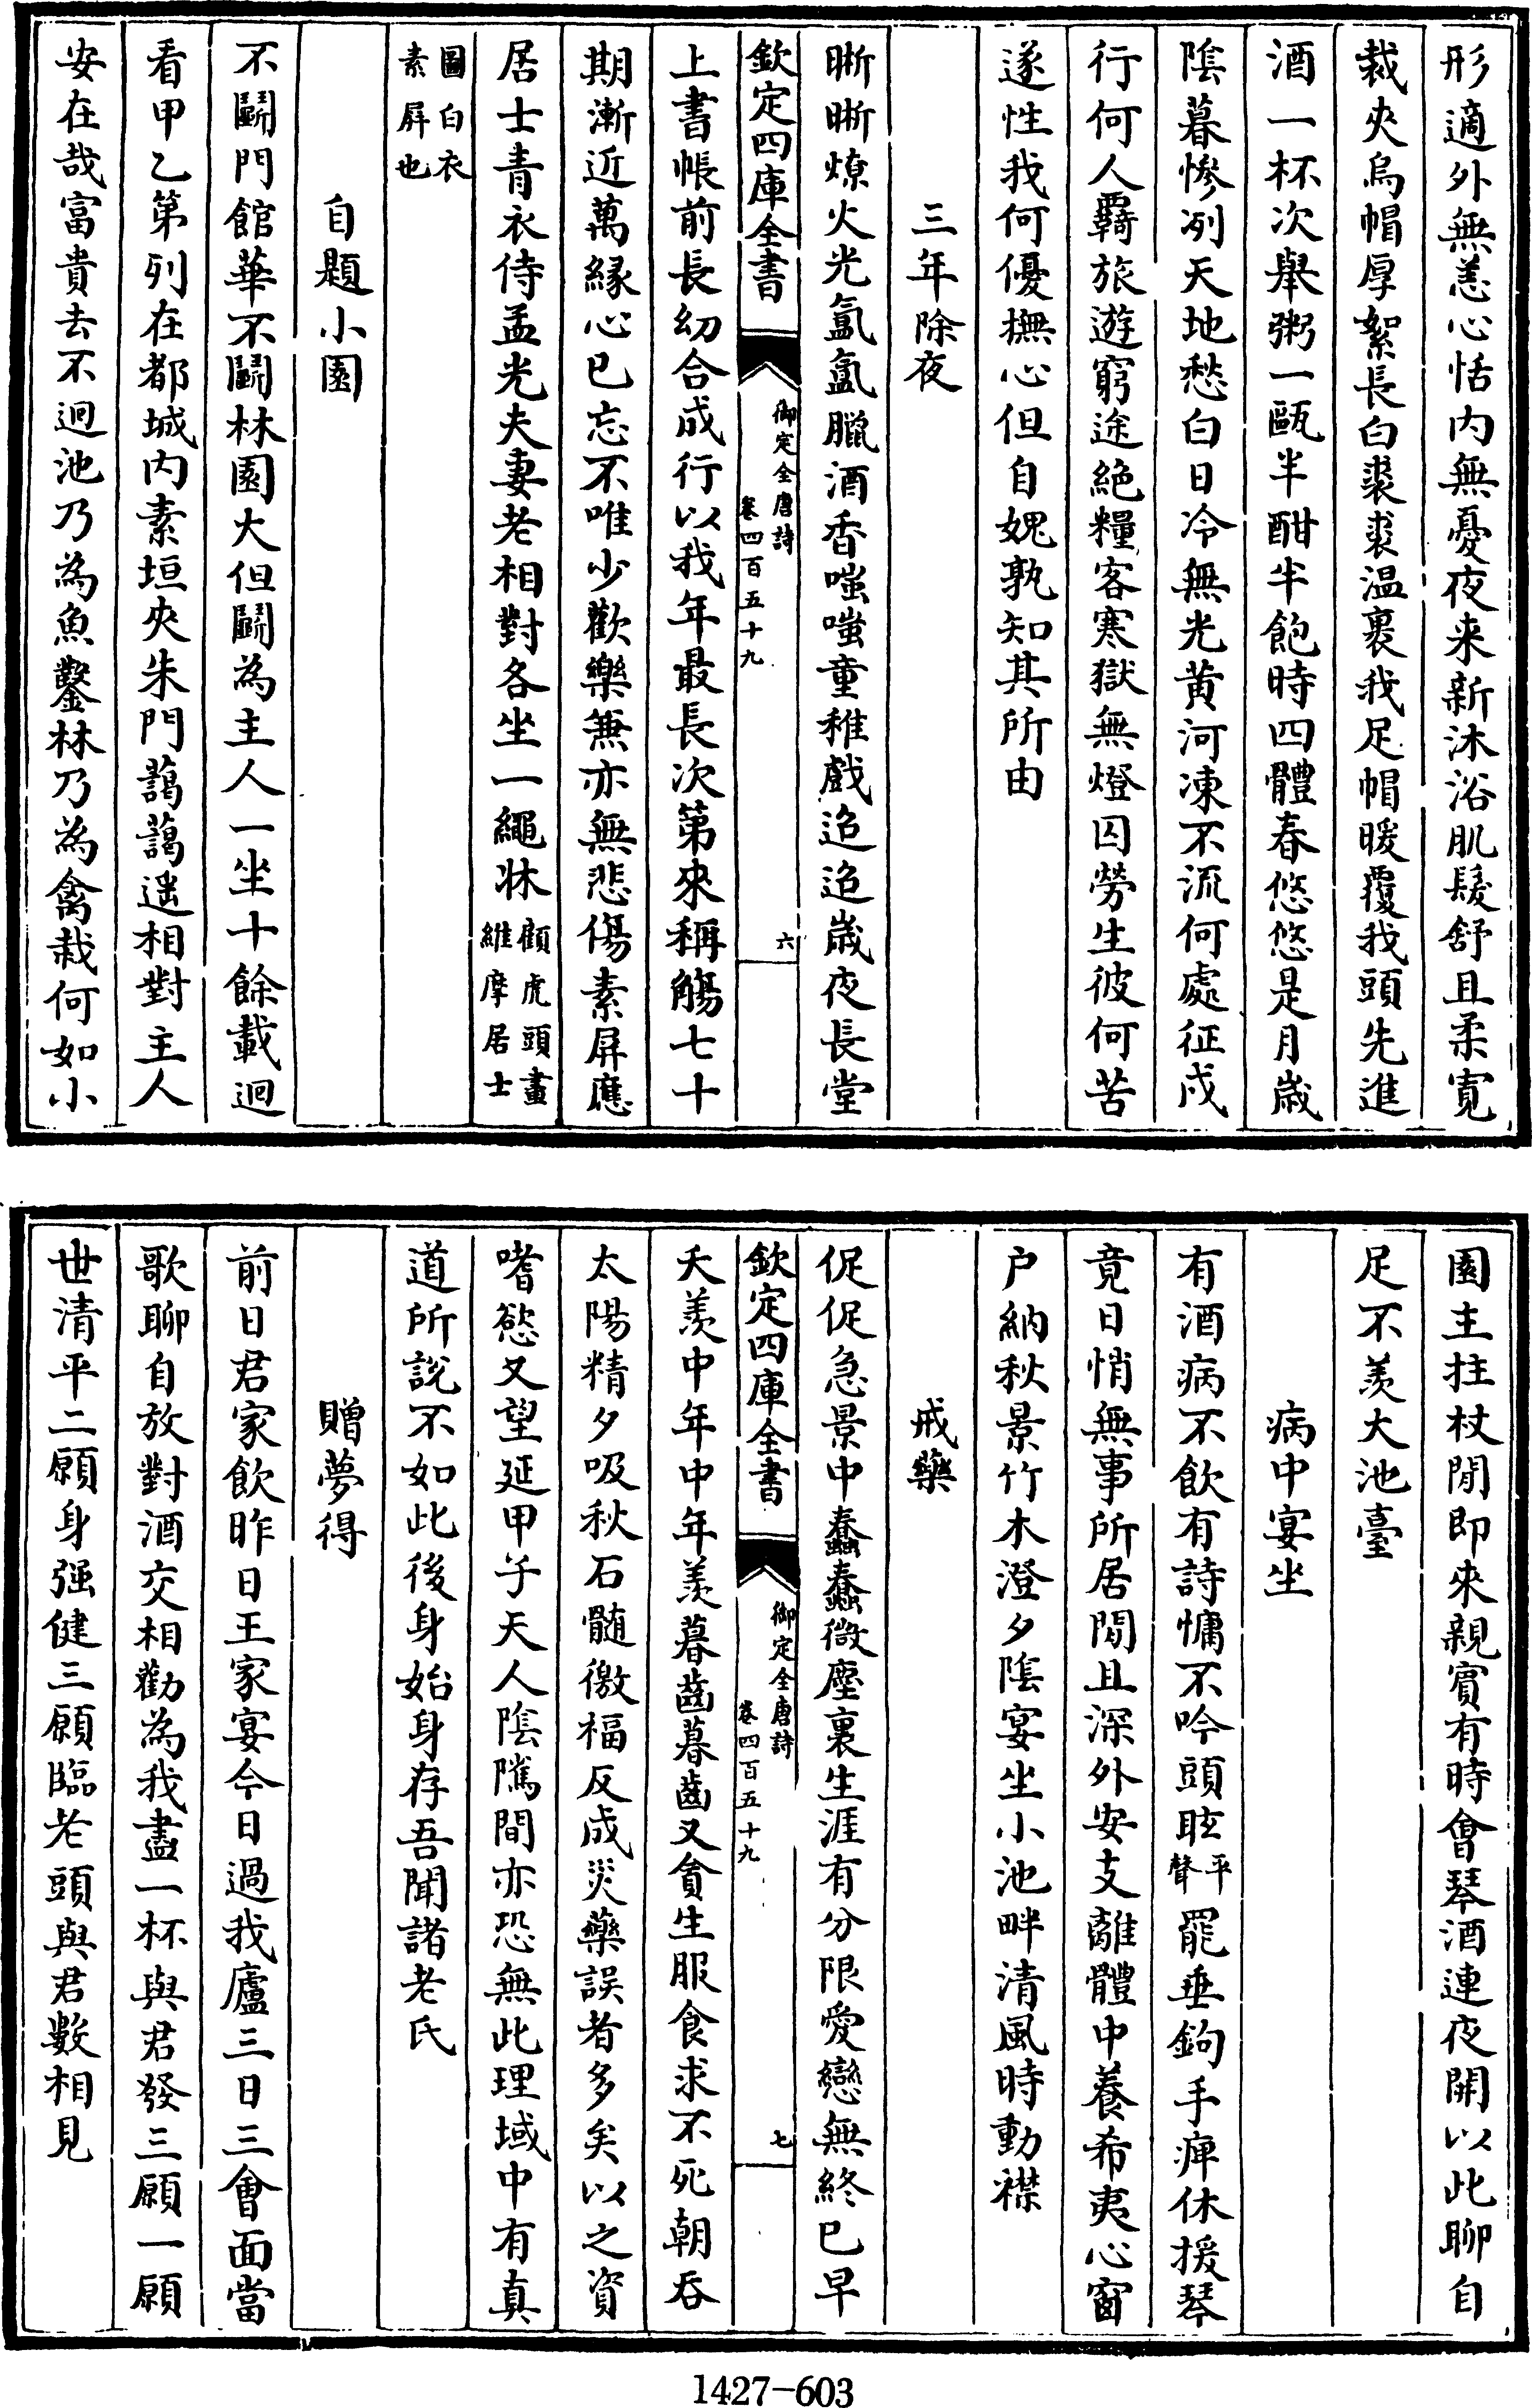 形適外無恙心恬内無憂夜来新沐浴肌髮舒且柔寛
裁夾烏帽厚絮長白裘裘温裹我足帽暖覆我頭先進
酒一杯次舉粥一甌半酣半飽時四體春悠悠是月歳
隂暮慘冽天地愁白日冷無光黄河凍不流何處征戍
行何人羇旅遊窮途絶糧客寒獄無燈囚勞生彼何苦
遂性我何優撫心但自媿孰知其所由
三年除夜
晰晰燎火光氳氳臘酒香嗤嗤童稚戲迢迢歳夜長堂
欽定四庫全書
御定全唐詩
卷四百五十九
六
上書帳前長幼合成行以我年最長次第來稱觴七十
期漸近萬緣心已忘不唯少歡樂兼亦無悲傷素屏應
居士青衣侍孟光夫妻老相對各坐一繩牀顧虎頭畫維摩居士
圖白衣素屏也
自題小園
不鬬門館華不鬬林園大但鬬為主人一坐十餘載迴
看甲乙第列在都城内素垣夾朱門藹藹遥相對主人
安在哉富貴去不迴池乃為魚鑿林乃為禽栽何如小
園主拄杖閒即來親賓有時會琴酒連夜開以此聊自
足不羨大池臺
病中宴坐
有酒病不飲有詩慵不吟頭眩平聲罷垂鉤手痺休援琴
竟日悄無事所居閒且深外安支離體中養希夷心窗
户納秋景竹木澄夕隂宴坐小池畔清風時動襟
戒藥
促促急景中蠢蠢微塵裏生涯有分限愛戀無終已早
欽定四庫全書
御定全唐詩
卷四百五十九
七
夭羨中年中年羨暮齒暮齒又貪生服食求不死朝吞
太陽精夕吸秋石髓徼福反成災藥誤者多矣以之資
嗜慾又望延甲子天人隂隲間亦恐無此理域中有真
道所説不如此後身始身存吾聞諸老氏
贈夢得
前日君家飲昨日王家宴今日過我廬三日三會面當
歌聊自放對酒交相勸為我盡一杯與君發三願一願
世清平二願身强健三願臨老頭與君數相見
1427-603